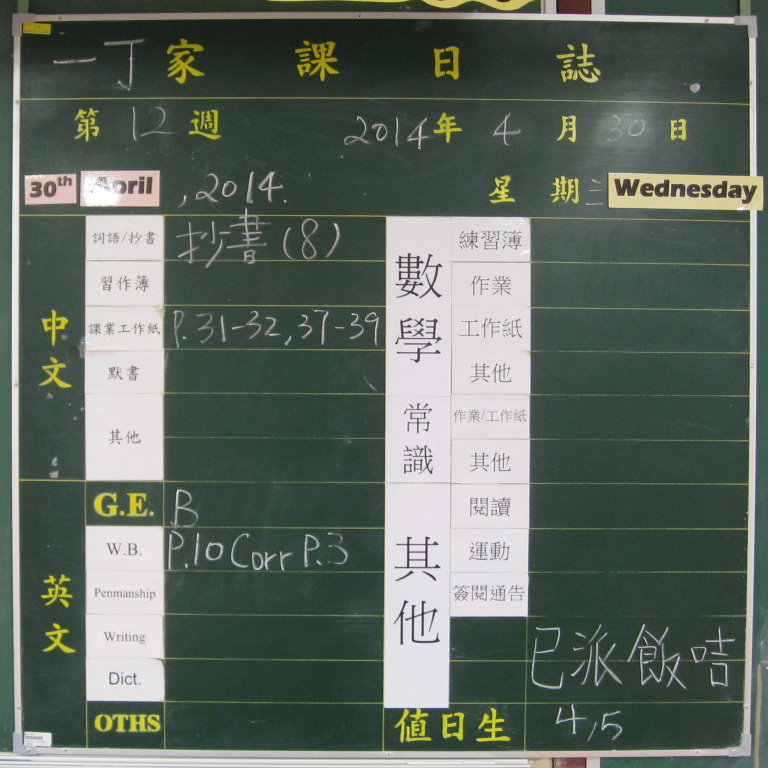 一丁家課日誌
第12週 2014年4月30日
30th April, 2014. 星期三 Wednesday
中文
詞語/抄書 抄書(8)
習作簿
課業工作紙 P.31-32,37-39
默書
其他
英文
G.E. B
W.B. P.10 Corr P.3
Penmanship
Writing
Dict.
OTHS
數學
練習簿
作業
工作紙
其他
常識
作業/工作紙
其他
其他
閱讀
運動
簽閱通告
已派飯咭
值日生 4,5